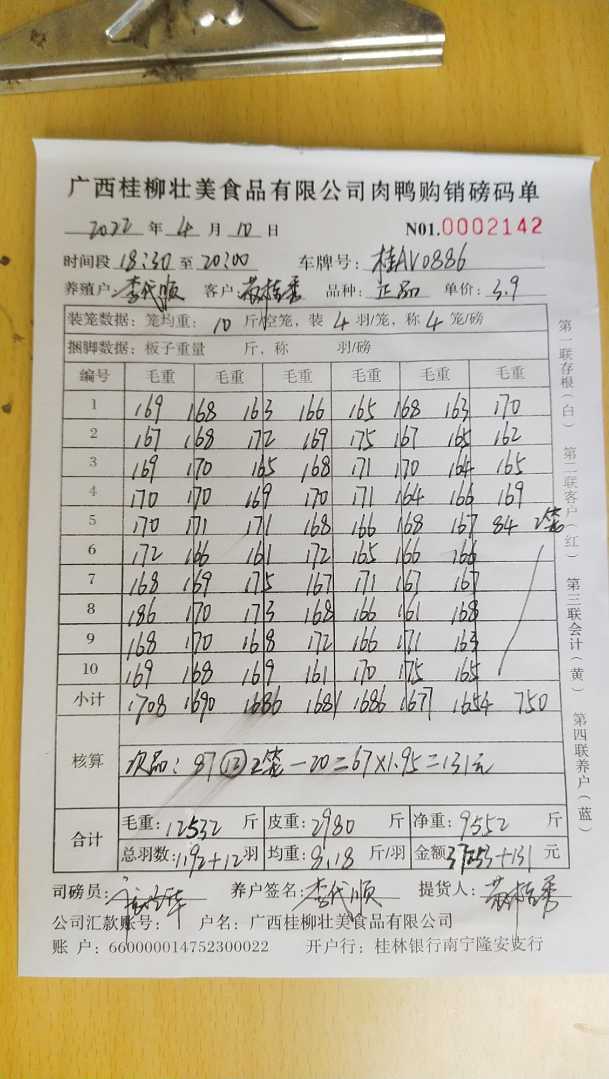 广西桂柳壮美食品有限公司肉鸭购销磅码单
2022 年 4 月 10 日 N01.0002142
时间段 18:30 至 20:00 车牌号: 桂AV0886
养殖户: 李代顺 客户: 品种: 正品 单价: 3.9
装笼数据: 笼均重: 10 斤/空笼, 装 4 羽/笼, 称 4 笼/磅
捆脚数据: 板子重量 斤, 称 羽/磅
编号 毛重 毛重 毛重 毛重 毛重 毛重
1 169 168 163 166 165 168 163 170
2 167 168 172 169 175 167 165 162
3 169 170 165 168 171 170 164 165
4 170 170 169 170 171 164 166 169
5 170 171 171 168 166 168 167 84 2笼
6 172 166 161 172 165 166 166
7 168 169 175 167 171 167 167
8 186 170 173 168 166 161 168
9 168 170 168 172 166 171 163
10 169 168 169 161 170 175 165
小计 1708 1690 1686 1681 1686 1677 1654 750
核算 次品: 87 ⑫ 2笼 -20=67×1.95=131元
合计 毛重: 12532 斤 皮重: 2980 斤 净重: 9552 斤
总羽数: 1192+12 羽 均重: 8.18 斤/羽 金额 37253+131 元
司磅员: 养户签名: 李代顺 提货人:
公司汇款账号: 户名: 广西桂柳壮美食品有限公司
账 户: 660000014752300022 开户行: 桂林银行南宁隆安支行
第一联存根(白) 第二联客户(红) 第三联会计(黄) 第四联养户(蓝)